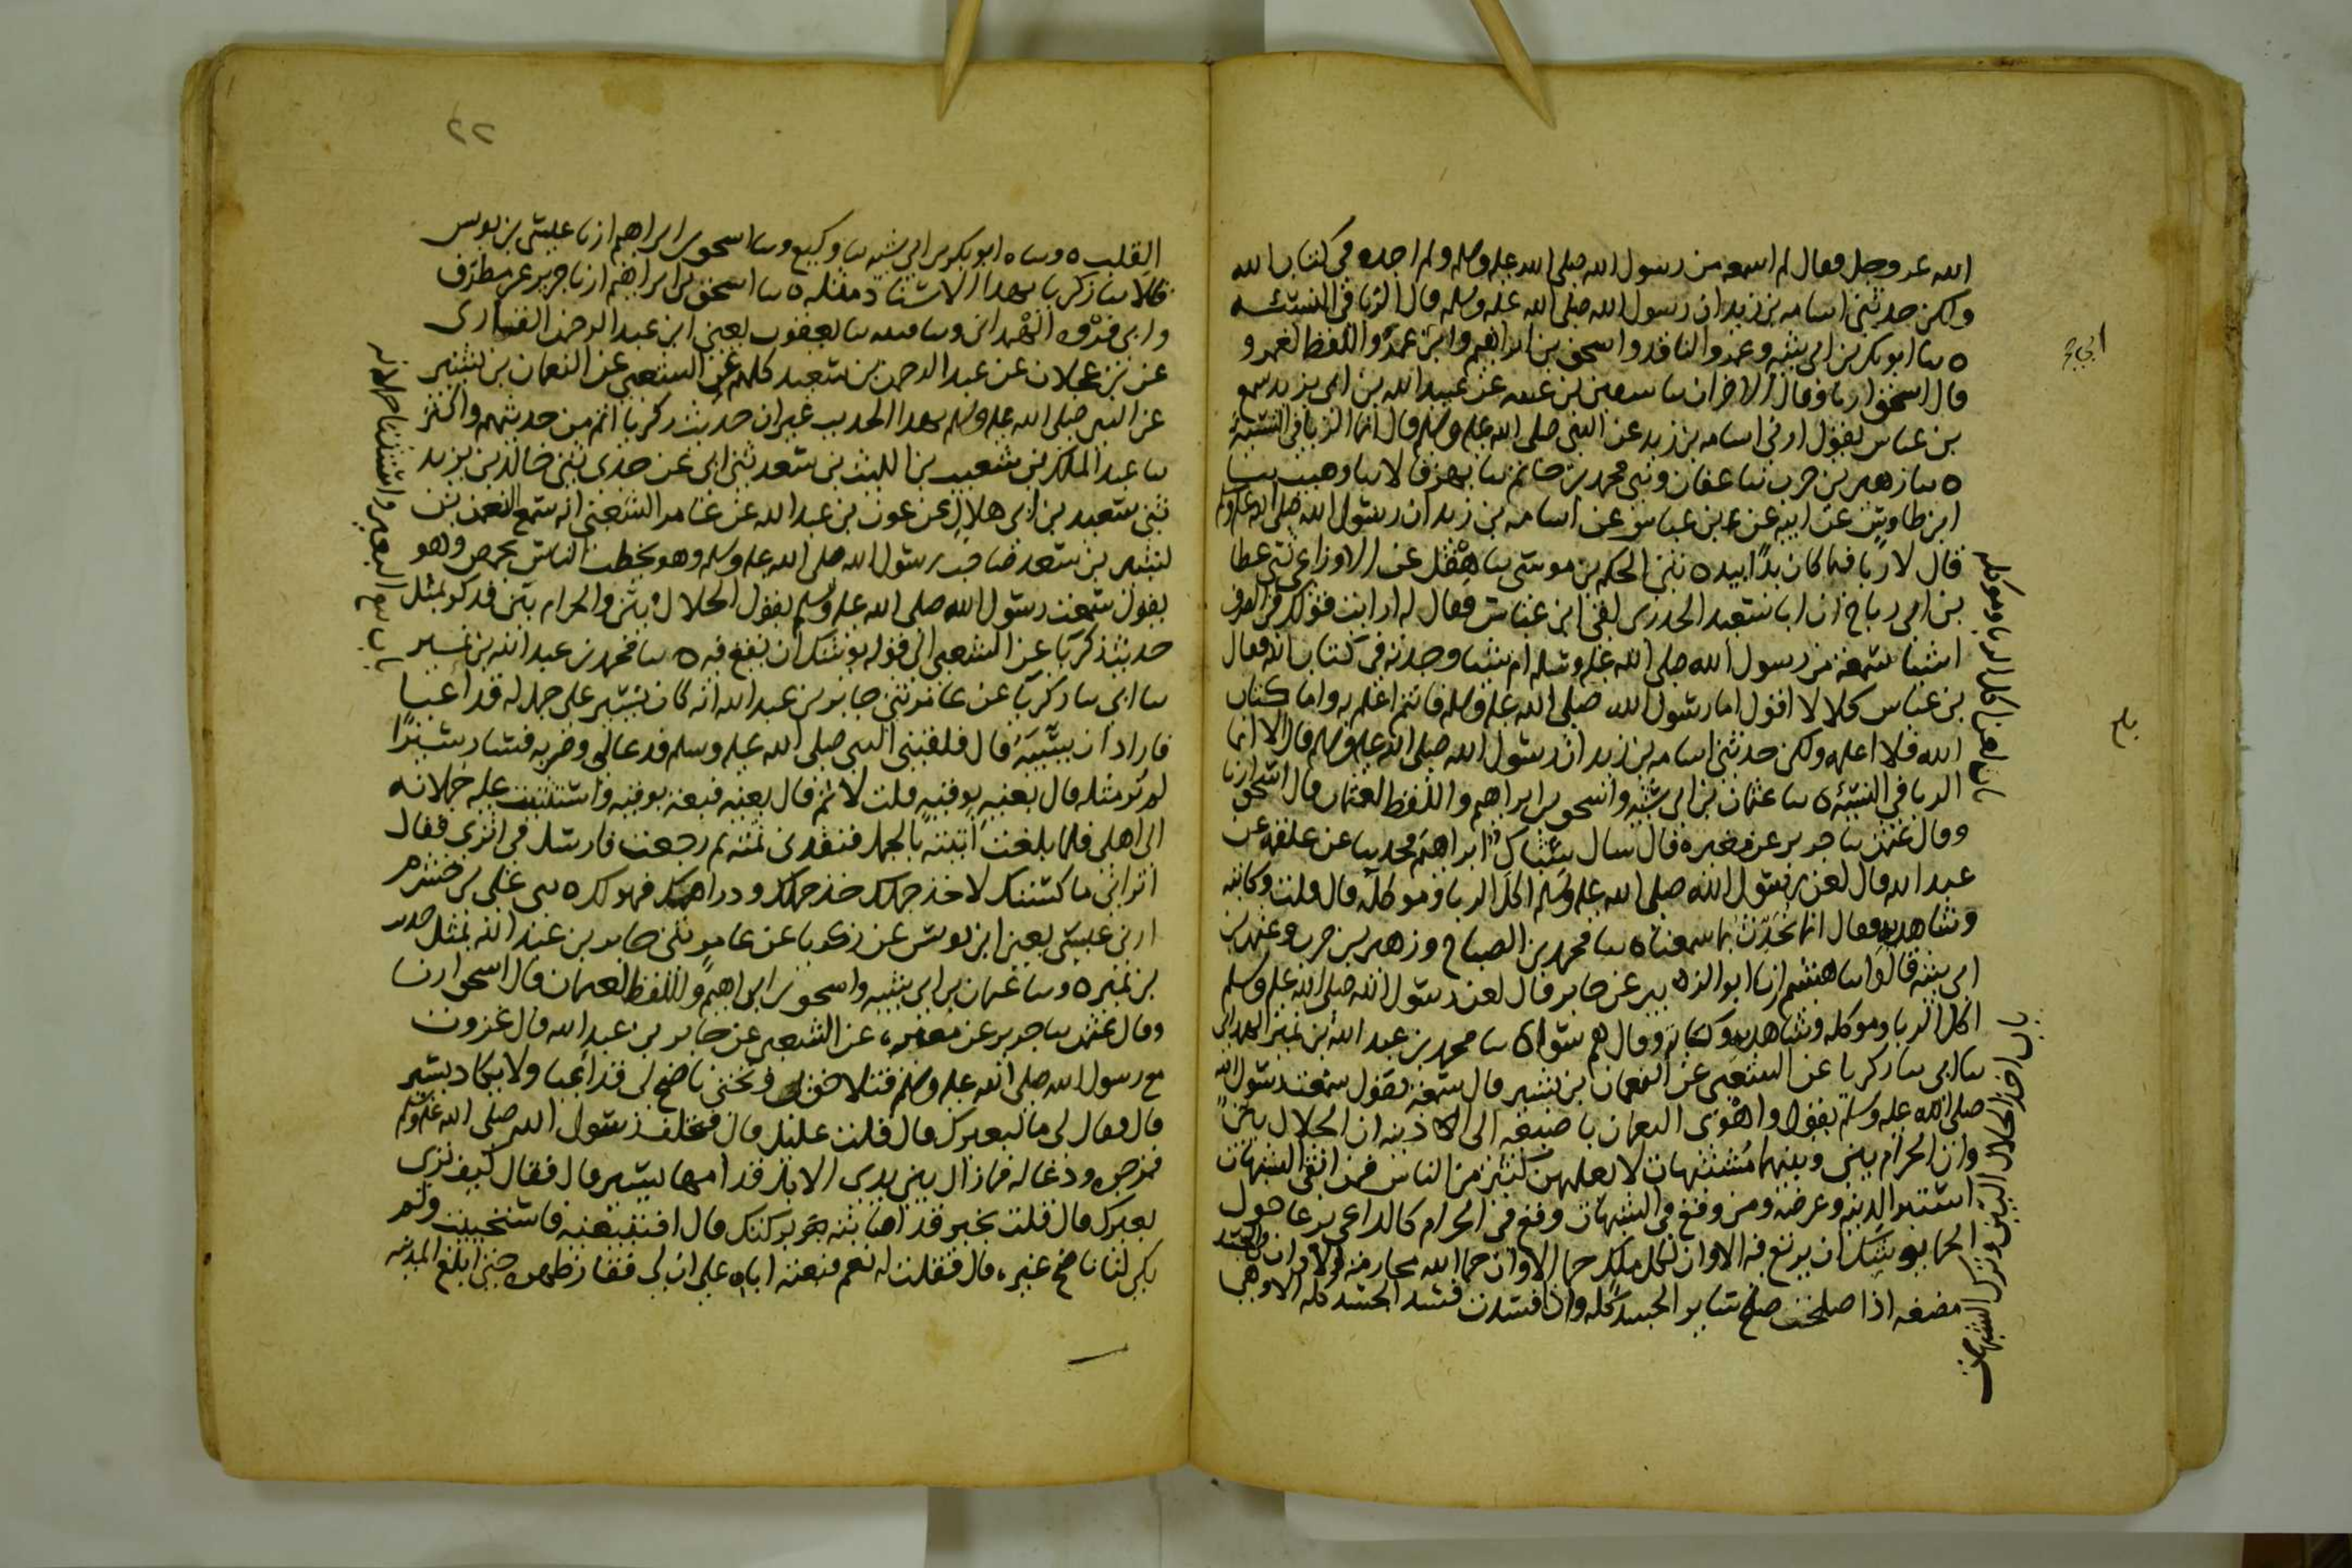 الله عز وجل فقال لم اسمعه من رسول الله صلى الله عليه وسلم ولم اجده في كتاب الله
ولكن حدثني اسامه بن زيد ان رسول الله صلى الله عليه وسلم قال الربا في النسيئه
ه نا ابو بكر بن ابي شيبه وعمرو الناقد واسحق بن ابراهيم وابن ابي عمر واللفظ لعمرو
قال اسحق ارنا وقال الاخران نا سفين بن عيينه عن عبيد الله بن ابي يزيد سمع
بن عباس يقول ارني اسامه بن زيد عن النبي صلى الله عليه وسلم قال انما الربا في النسيئة
ه نا زهير بن حرب نا عفان وثني محمد بن حاتم نا بهز قالا نا وهيب نا
ابن طاوس عن ابيه عن ابن عباس عن اسامه بن زيد ان رسول الله صلى الله عليه وسلم
قال لا ربا فيما كان يدا بيد ه ثني الحكم بن موسى نا هقل عن الاوزاعي ثني عطا
بن ابي رباح ان ابا سعيد الخدري لقي ابن عباس فقال له ارايت قولك في الصرف
اشيا سمعته من رسول الله صلى الله عليه وسلم ام شيا وجدته في كتاب الله فقال
بن عباس كلا لا اقول اما رسول الله صلى الله عليه وسلم فانتم اعلم به واما كتاب
الله فلا اعلمه ولكن حدثني اسامه بن زيد ان رسول الله صلى الله عليه وسلم قال الا انما
الربا في النسيئه ه نا عثمان بن ابي شيبه واسحق بن ابراهيم واللفظ لعثمان قال اسحق ارنا
وقال عثمن نا جرير عن مغيره قال سال شباك ابراهيم فحدثنا عن علقمه عن
عبد الله قال لعن رسول الله صلى الله عليه وسلم اكل الربا وموكله قال قلت وكاتبه
وشاهديه فقال انما نحدث بما سمعنا ه نا محمد بن الصباح وزهير بن حرب وعثمن بن
ابي شيبه قالوا نا هشيم ارنا ابو الزبير عن جابر قال لعن رسول الله صلى الله عليه وسلم
اكل الربا وموكله وشاهديه وكاتبه وقال هم سوا ه نا محمد بن عبد الله بن نمير الهمداني
نا ابي نا زكريا عن الشعبي عن النعمان بن بشير قال سمعته يقول سمعت رسول الله
صلى الله عليه وسلم يقول واهوى النعمان باصبعيه الى اذنيه ان الحلال بين
وان الحرام بين وبينهما مشتبهات لا يعلمهن كثير من الناس فمن اتقى الشبهات
استبرا لدينه وعرضه ومن وقع في الشبهات وقع في الحرام كالراعي يرعا حول
الحما يوشك ان يرتع فيه الا وان لكل ملك حما الا وان حما الله محارمه الا وان في الجسد
مضغه اذا صلحت صلح ساير الجسد كله واذا فسدت فسد الجسد كله الا وهي
باب لعن اكل الربا وموكله
باب اخذ الحلال البين وترك الشبهات
٢٢
القلب ه ونا ه ابو بكر بن ابي شيبه نا وكيع ونا اسحق بن ابراهيم ارنا عيسى بن يونس
قالا نا زكريا بهذا الاسناد مثله ه نا اسحق بن ابراهيم ارنا جرير عن مطرف
وابي فروه الهمداني ونا قتيبه نا يعقوب يعني ابن عبد الرحمن القاري
عن بن عجلان عن عبد الرحمن بن سعيد كلهم عن الشعبي عن النعمان بن بشير
عن النبي صلى الله عليه وسلم بهذا الحديث غير ان حديث زكريا اتم من حديثهم واكثر
نا عبد الملك بن شعيب بن الليث بن سعد ثني ابي عن جدي ثني خالد بن يزيد
ثني سعيد بن ابي هلال عن عون بن عبد الله عن عامر الشعبي انه سمع النعمن بن
بشير بن سعد صاحب رسول الله صلى الله عليه وسلم وهو يخطب الناس بحمص وهو
يقول سمعت رسول الله صلى الله عليه وسلم يقول الحلال بين والحرام بين فذكر بمثل
حديث زكريا عن الشعبي الى قوله يوشك ان يقع فيه ه نا محمد بن عبد الله بن نمير
نا ابي نا زكريا عن عامر ثني جابر بن عبد الله انه كان يسير على جمل له قد اعيا
فاراد ان يسيبه قال فلحقني النبي صلى الله عليه وسلم فدعا لي وضربه فسار سيرا
لم يسر مثله قال بعنيه بوقيه قلت لا ثم قال بعنيه فبعته بوقيه واستثنيت عليه حملانه
الى اهلي فلما بلغت اتيته بالجمل فنقدني ثمنه ثم رجعت فارسل في اثري فقال
اتراني ماكستك لاخذ جملك خذ جملك ودراهمك فهو لك ه نا علي بن خشرم
ارنا عيسى يعني ابن يونس عن زكريا عن عامر ثني جابر بن عبد الله بمثل حديث
بن نمير ه ونا عثمان بن ابي شيبه واسحق بن ابراهيم واللفظ لعثمان قال اسحق ارنا
وقال عثمن نا جرير عن مغيره عن الشعبي عن جابر بن عبد الله قال غزوت
مع رسول الله صلى الله عليه وسلم فتلاحق بي وتحتي ناضح لي قد اعيا ولا يكاد يسير
قال فقال لي ما لبعيرك قال قلت عليل قال فتخلف رسول الله صلى الله عليه وسلم
فزجره ودعا له فما زال بين يدي الابل قدامها يسير قال فقال كيف ترى
بعيرك قال قلت بخير قد اصابته بركتك قال افتبيعنيه فاستحييت ولم
يكن لنا ناضح غيره قال فقلت له نعم فبعته اياه على ان لي فقار ظهره حتى ابلغ المدينه
باب بيع البعير واستثنا حملانه